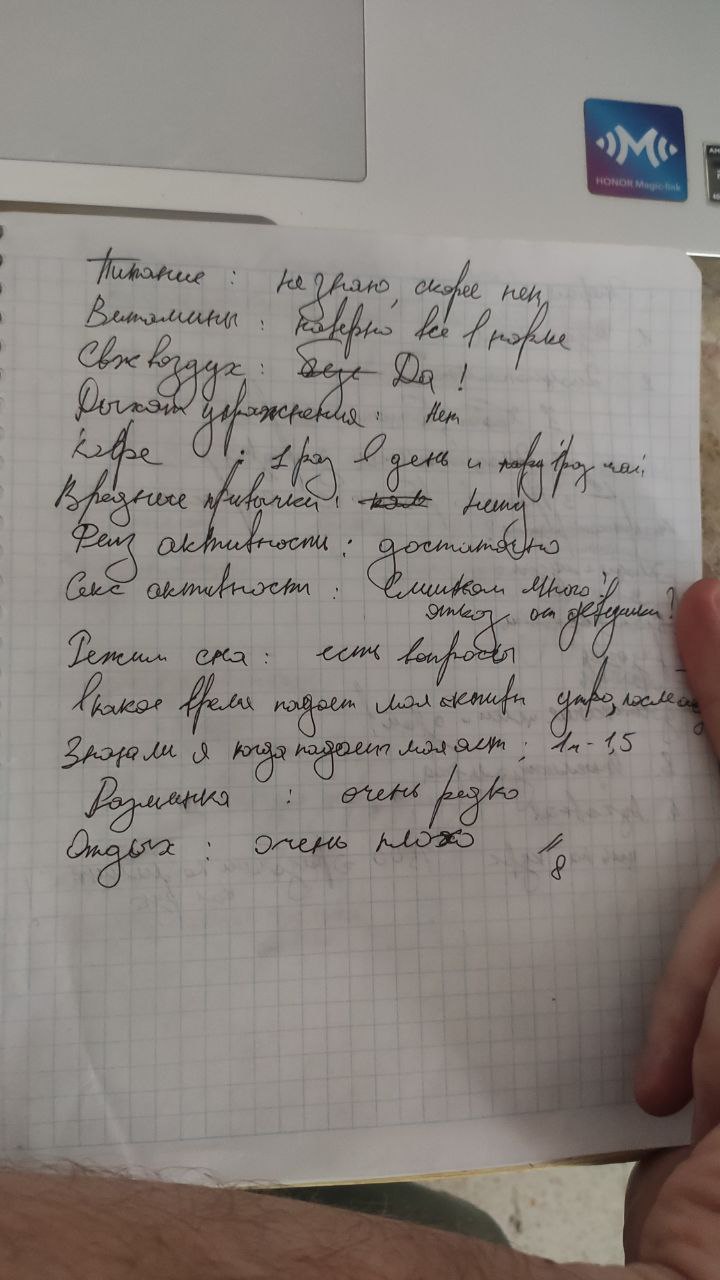 HONOR Magic-link
AM
Питание : не знаю, скорее нет
Витамины : наверно все в норме
Свеж воздух : Да !
Дыхат упражнения : Нет
Кофе : 1 раз в день и 1 раз чай
Вредные привычки : нету
Физ активности : достаточно
Секс активност : Слишком много !
отказ от девушки ?
Режим сна : есть вопросы
В какое время падает моя активн утро, после
когда падает моя акт : 1ч - 1,5
Разминка : очень редко
Отдых : очень плохо
8